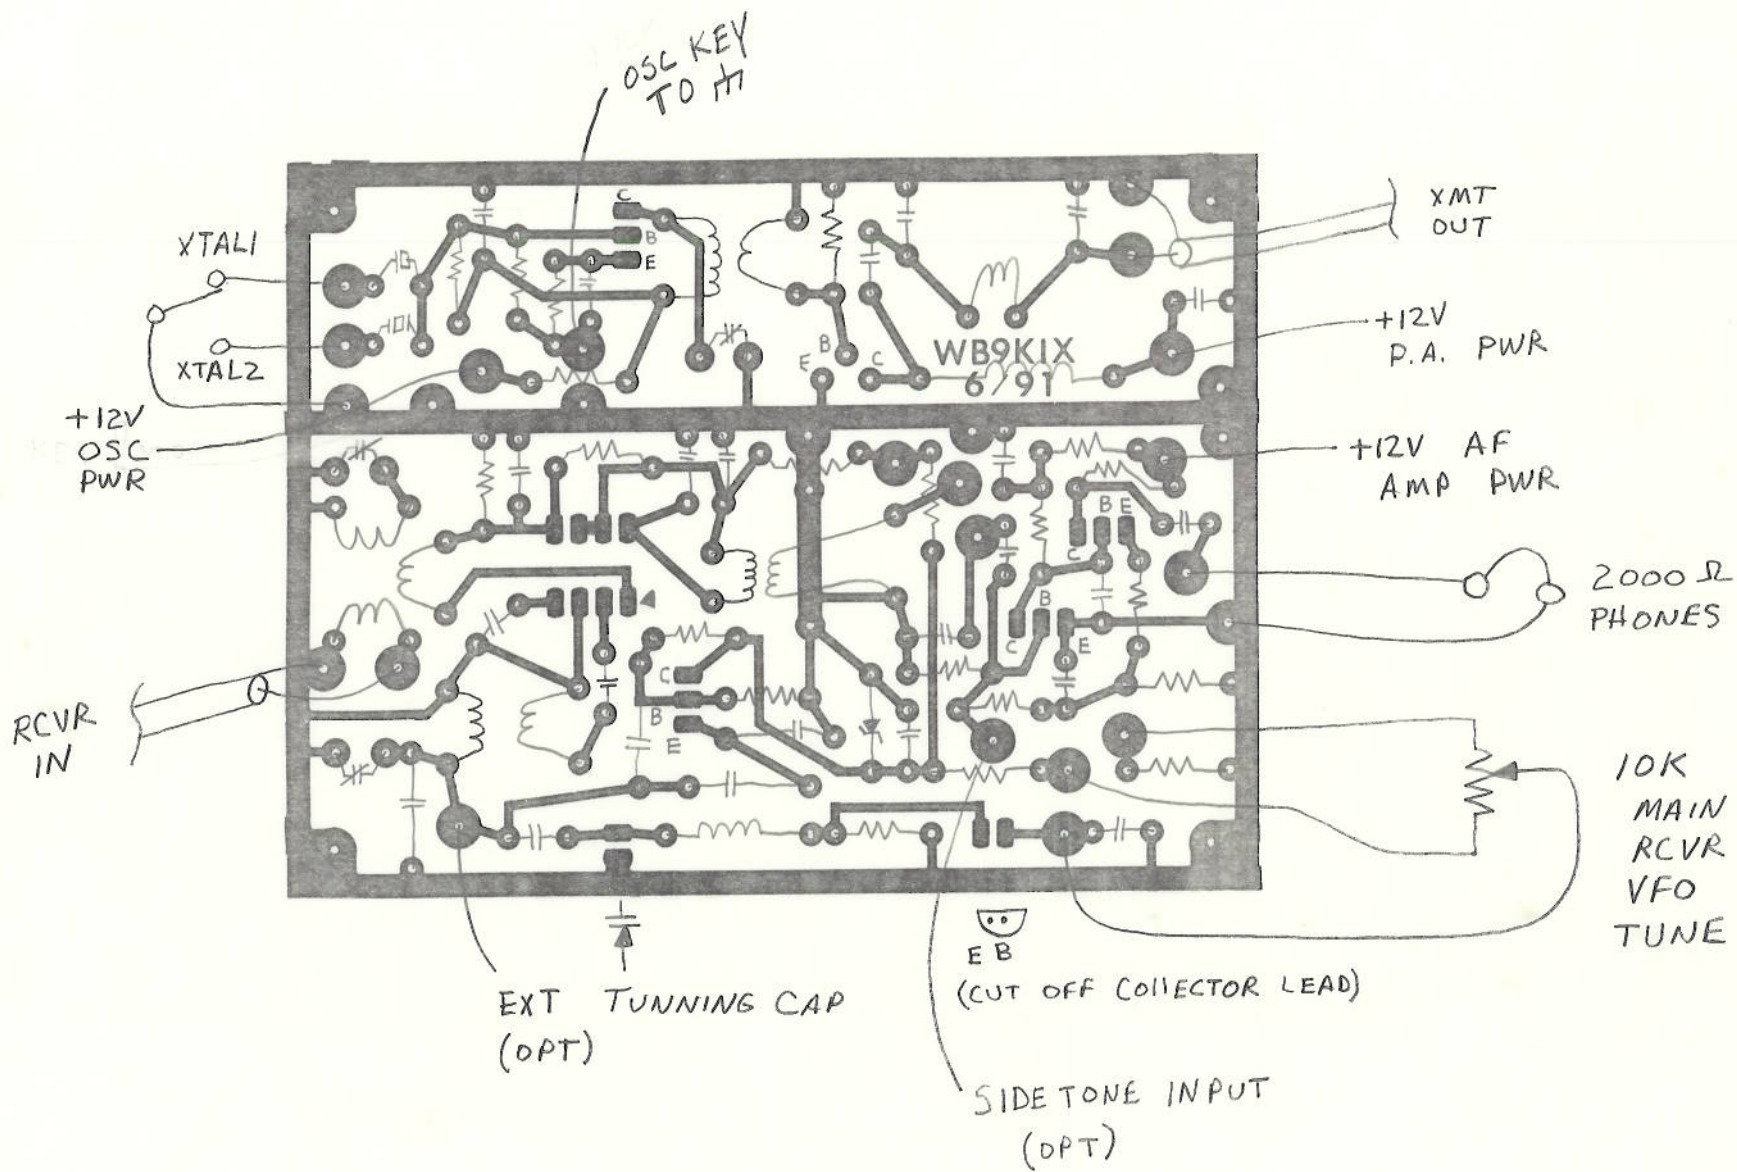 OSC KEY
TO
XTAL1
XTAL2
+12V
OSC
PWR
XMT
OUT
+12V
P.A. PWR
WB9KIX
6/91
+12V AF
AMP PWR
2000 Ω
PHONES
RCVR
IN
10K
MAIN
RCVR
VFO
TUNE
C
B
E
B
E
C
B E
C
B
C
E
C
B
E
E B
(CUT OFF COllECTOR LEAD)
EXT TUNNING CAP
(OPT)
SIDETONE INPUT
(OPT)